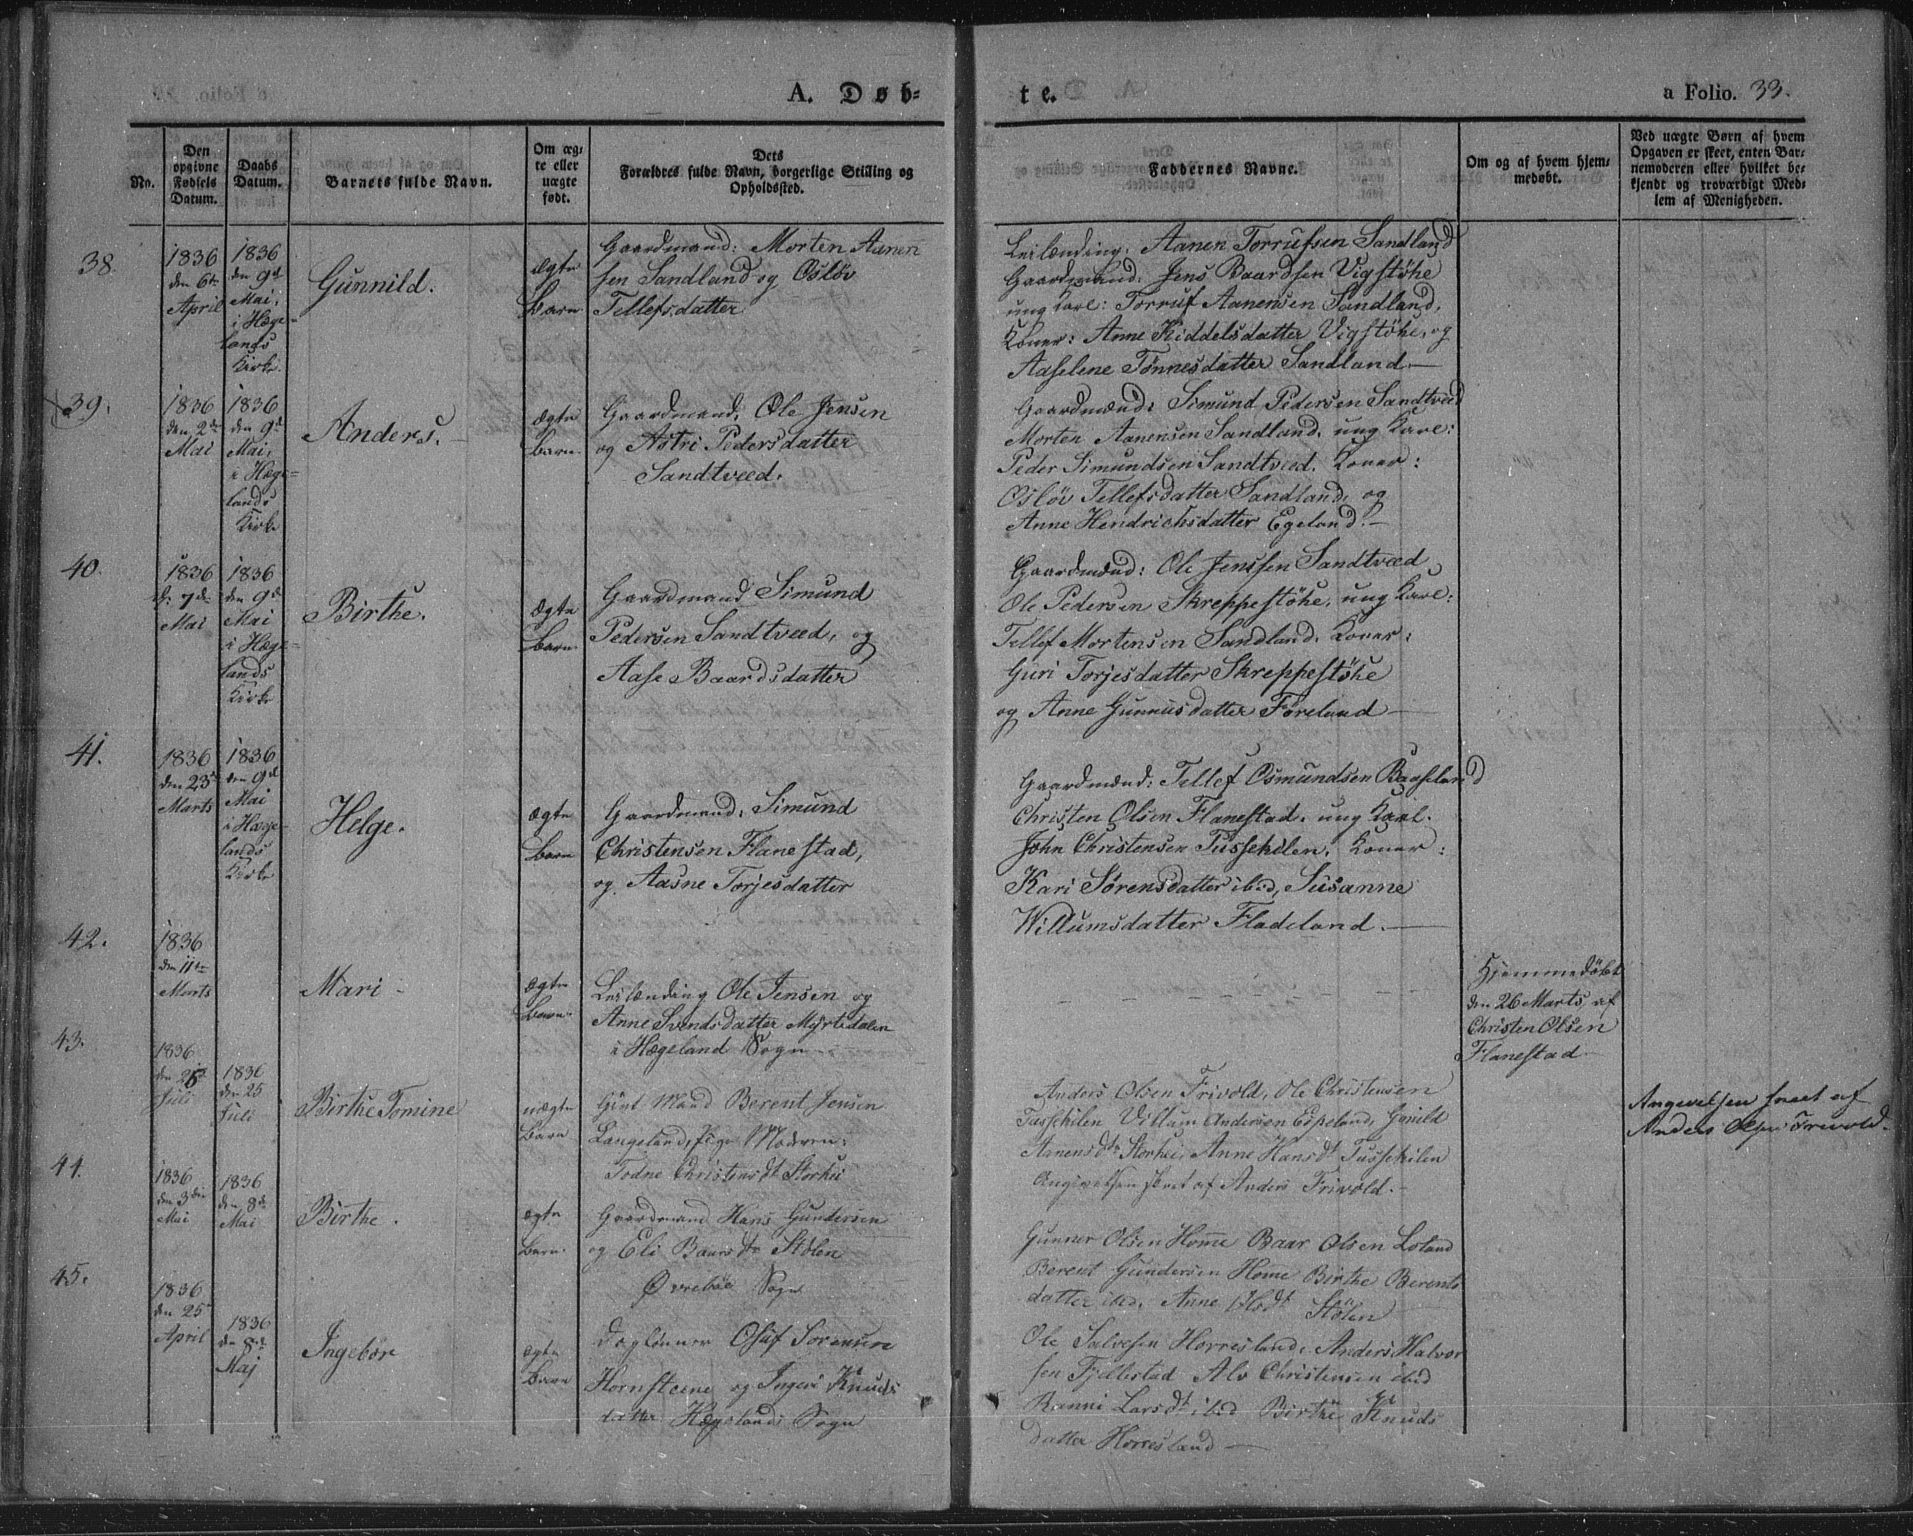 A. Døb-
te.
a Folio. 33.
No.
Den opgivne Fødsels Datum.
Daabs Datum.
Barnets fulde Navn.
Om æg-
te eller
uægte
født.
Dets
Forældres fulde Navn, borgerlige Stilling og
Opholdssted.
Faddernes Navne.
Om og af hvem hjem-
medøbt.
Ved uægte Børn af hvem
Opgaven er skeet, enten Bar-
nemoderen eller hvilket be-
kjendt og troværdigt Med-
lem af Menigheden.
38.
1836
den 6te
April
1836
den 9de
Mai,
i Hæge-
lands
Kirke.
Gunnild.
ægte
Barn
Gaardmand: Morten Aanen
sen Sandland og Osløv
Tellefsdatter
Leilænding: Aanen Torrufsen Sandland
Gaardmand: Jens Baardsen Vigstøhe
ung Karl: Torruf Aanensen Sandland,
Koner: Anne Kiddelsdatter Vigstøhe, og
Aaselene Tønnesdatter Sandland
39.
1836
den 2de
Mai
1836
den 9de
Mai,
i Hæge-
lands
Kirke
Anders.
ægte
Barn.
Gaardmand: Ole Jensen
og Astri Pedersdatter
Sandtvæd.
Gaardmænd: Simund Pedersen Sandtvæd
Morten Aanensen Sandland, ung Karl:
Peder Simundsen Sandtvæd. Koner:
Osløv Tellefsdatter Sandland, og
Anne Hendrichsdatter Egeland.
40.
1836
d. 7de
Mai
1836
den 9de
Mai
i Hæge-
lands
Kirke
Birthe.
ægte
Barn.
Gaardmand Simund
Pedersen Sandtvæd, og
Aase Baardsdatter
Gaardmænd: Ole Jenssen Sandtvæd
Ole Pedersen Skreppestøhe, ung Karl:
Tellef Mortensen Sandland. Koner:
Guri Torjesdatter Skreppestøhe
og Anne Gunnusdatter Føreland
41.
1836
den 23de
Marts
1836
den 9de
Mai
i Hæge-
lands
Kirke
Helge.
ægte
Barn
Gaardmand, Simund
Christensen Flanestad,
og Aasne Torjesdatter
Gaardmænd: Tellef Osmundsen Baaseland
Christen Olsen Flanestad. ung Karl.
John Christensen Tusschilen. Koner:
Kari Sørensdatter ibid, Susanne
Willumsdatter Fladeland.
42.
1836
den 11te
Marts
Mari
ægte
Barn.
Leilænding Ole Jensen og
Anne Svendsdatter Myrtedalen
i Hægeland Sogn
Hjemmedøbt
den 26 Marts af
Christen Olsen
Flanestad
43.
1836
Juli
1836
den 25
Juli
Birthe Tomine
uægte
Barn
Gift Mand Berent Jensen
Langeland, Pige Moderen:
Todne Christensdt Storhei
Anders Olsen Frivold, Ole Christensen
Tusschilen Villum Andersen Espeland, Gunild
Aanensdtr Storhei, Anne Hansdt Tusschilen
Angivelsen skeet af Anders Frivold.
Angivelsen skeet af
Anders Olsen Frivold.
44.
1836
den 3die
Mai
1836
den 8de
Mai
Birthe.
ægte
Barn.
Gaardmand Hans Gundersen
og Eli Baarsdtr Stølen
Øvrebøe Sogn
Gunner Olsen Home Baar Olsen Loland
Berent Gundersen Home Birthe Berents
datter ibid, Anne Hsdt Stølen
45.
1836
den 25de
April
1836
den 8de
Maj
Ingebor
ægte
Barn
Daglønner Osuf Sørensen
Hornsteene og Ingeri Knuds
datter Hægelands Sogn
Ole Salvesen Horresland, Anders Halvor
sen Fjellestad Alv Christensen ibid
Ranni Larsdt ibid Birthe Knuds
datter Horresland